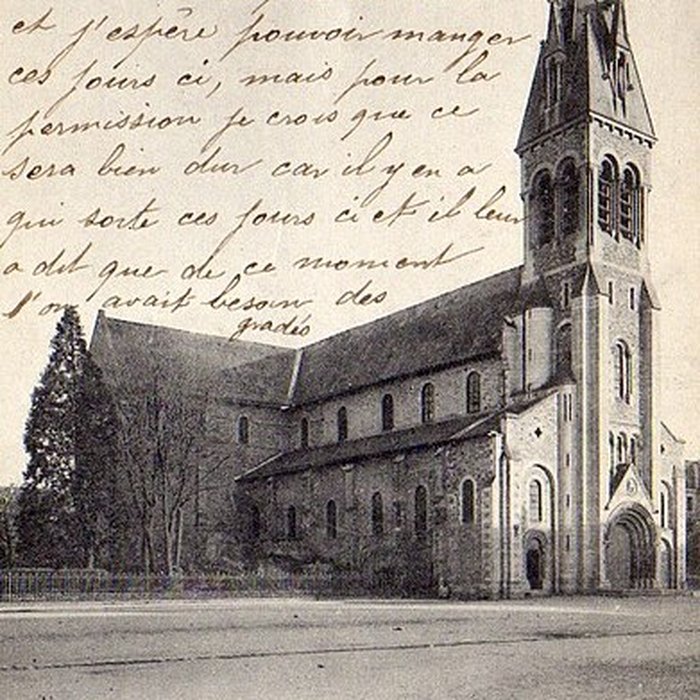 et j'espère pouvoir manger
ces jours ci, mais pour la
permission je crois que ce
sera bien dur car il y en a
qui sorte ces jours ci et il leur
a dit que de ce moment
l'on avait besoin des
gradés